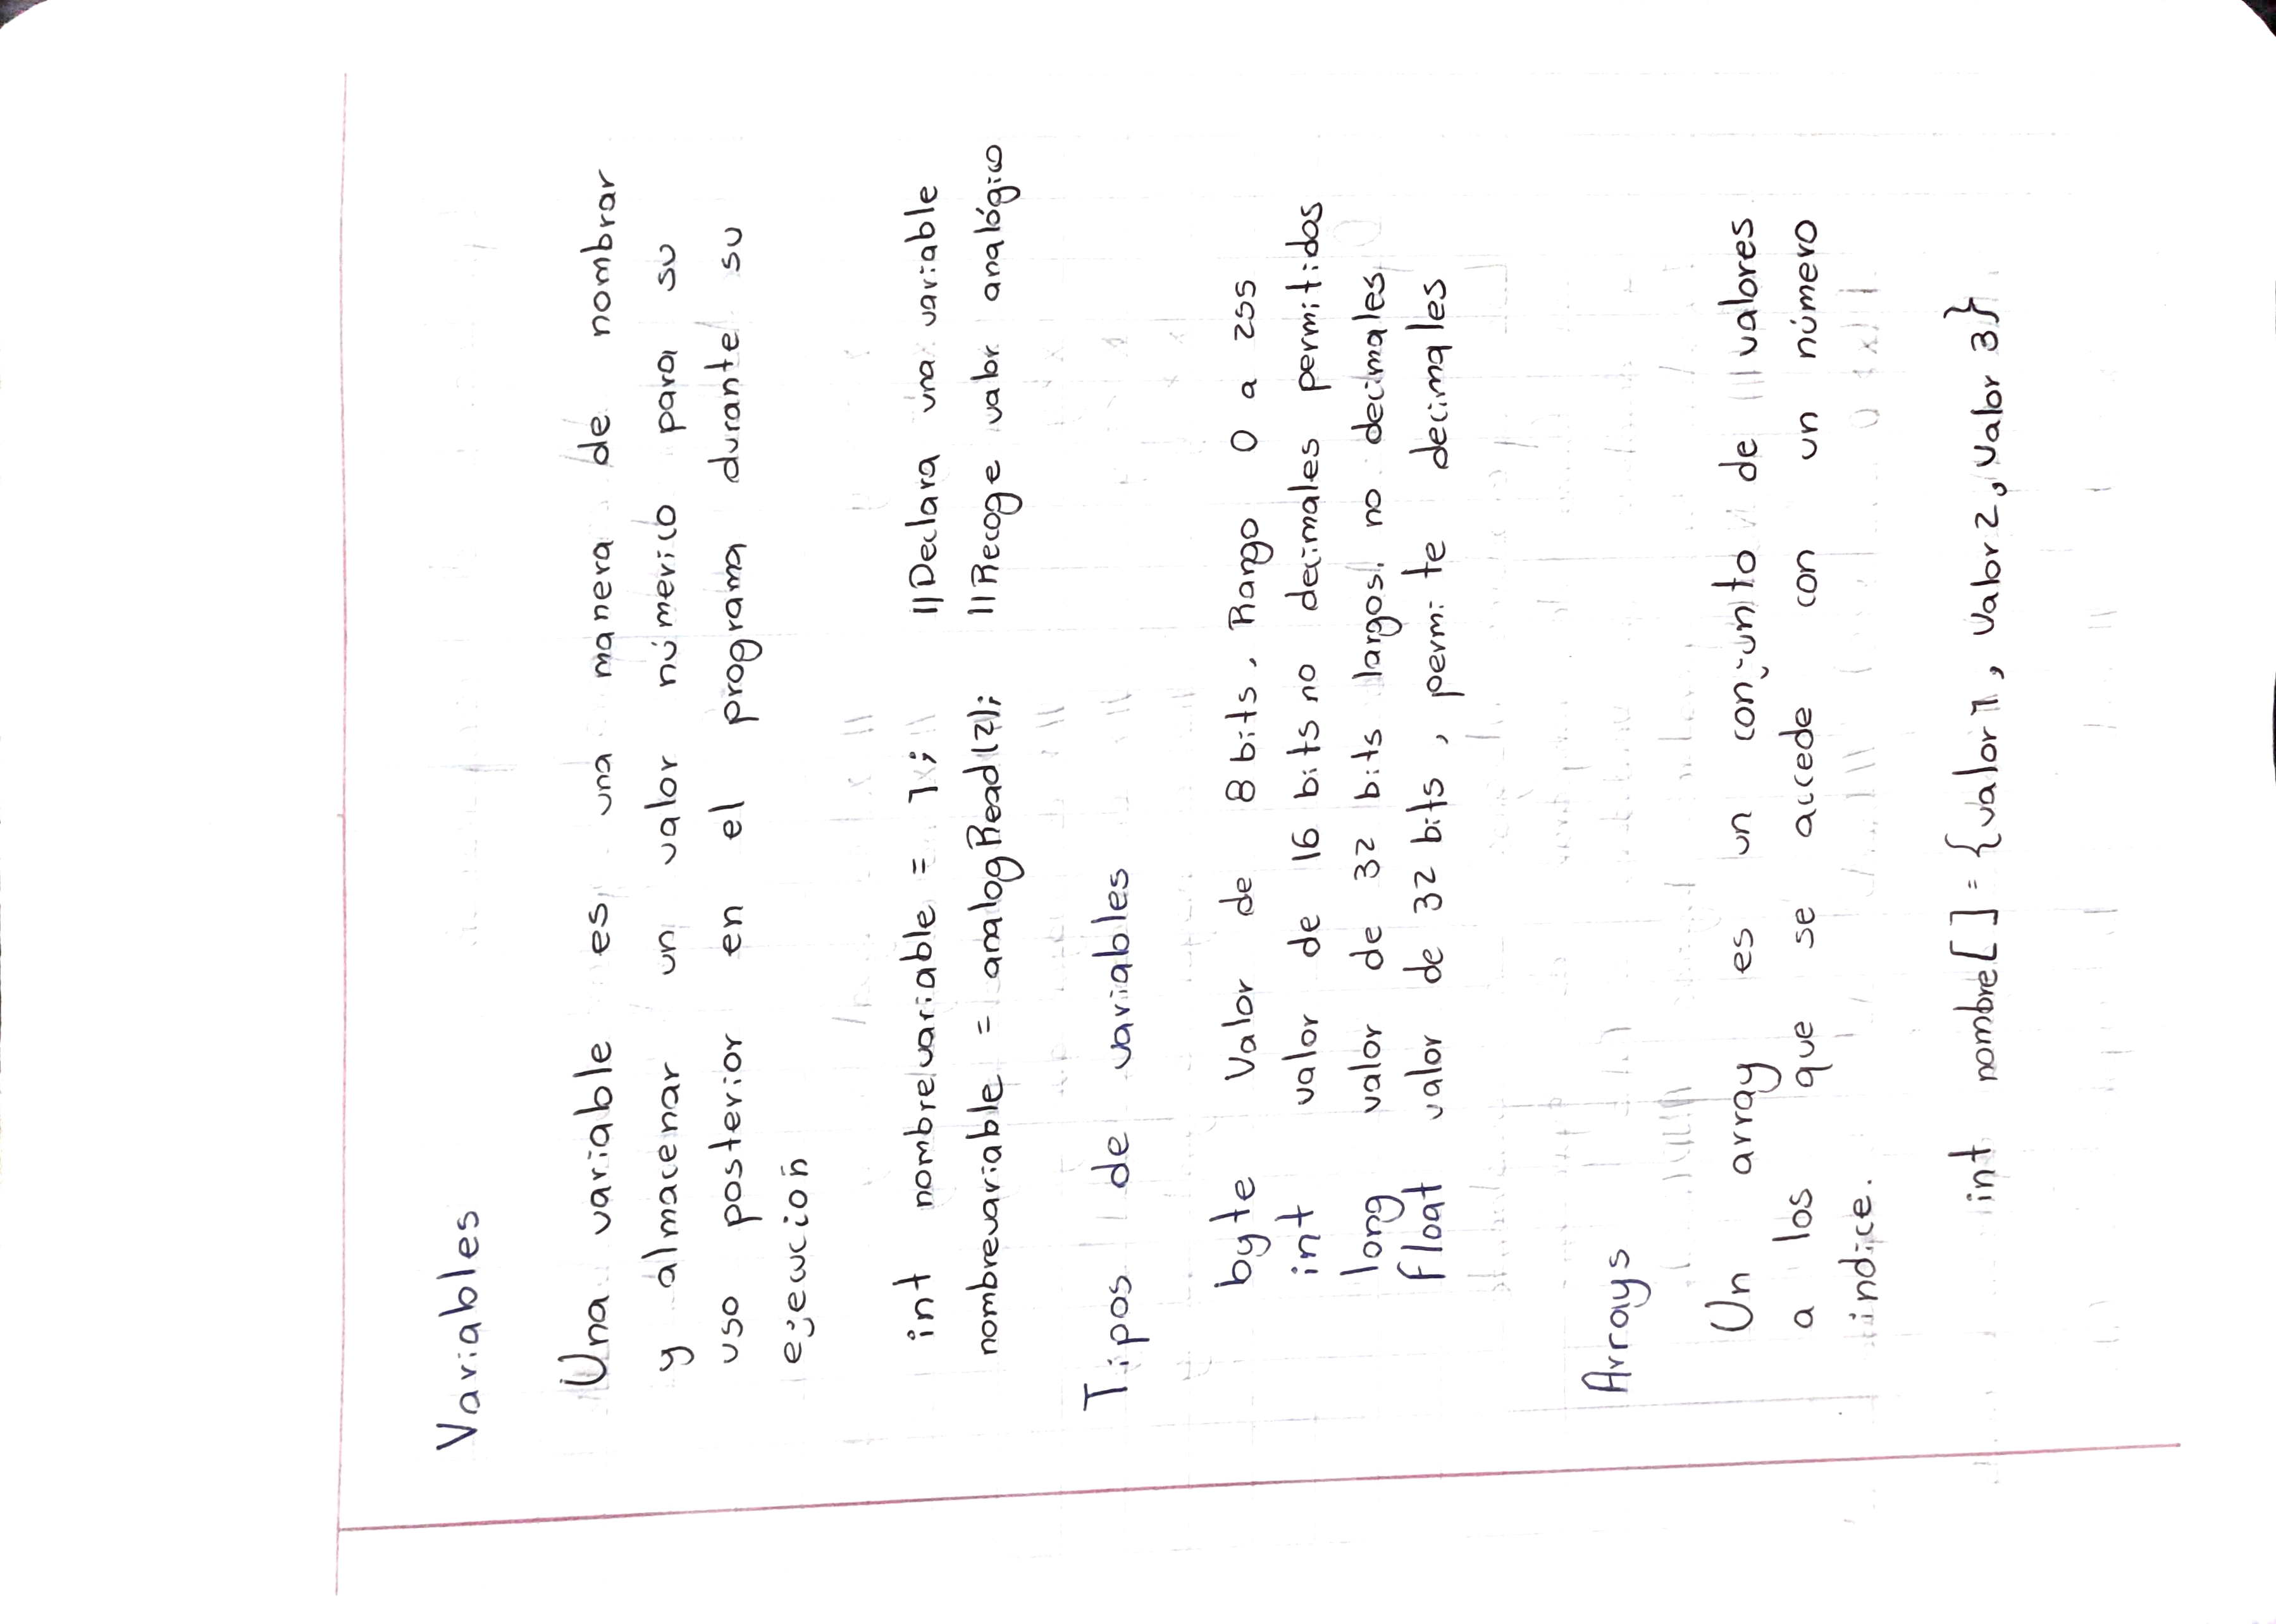 Variables
Una variable es una manera de nombrar
y almacenar un valor númerico para su
uso posterior en el programa durante su
ejecución
int nombrevariable = 1; //Declara una variable
nombrevariable = analogRead(2); //Recoge valor analógico
Tipos de variables
byte Valor de 8 bits. Rango 0 a 255
int valor de 16 bits no decimales permitidos
long valor de 32 bits largos. no decimales
float valor de 32 bits, permite decimales
Arrays
Un array es un conjunto de valores
a los que se accede con un número
indice.
int nombre[] = {valor 1, Valor 2, Valor 3}